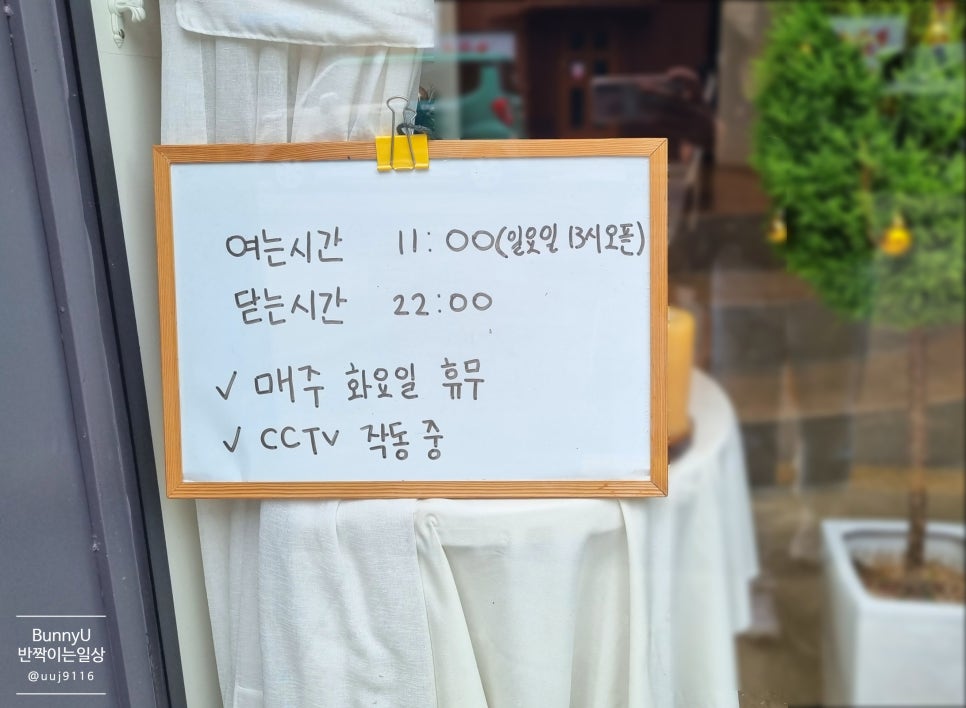 여는시간 11:00(일요일 13시오픈)
닫는시간 22:00
✓ 매주 화요일 휴무
✓ CCTV 작동 중
BunnyU
반짝이는일상
@uuj9116